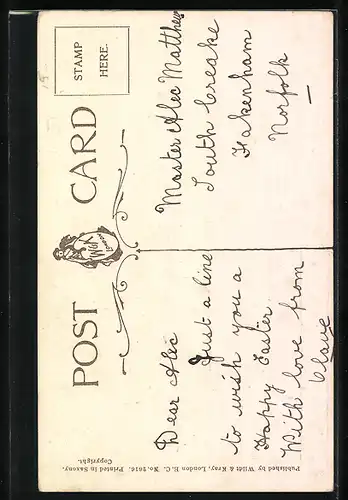 POST CARD
STAMP
HERE.
Dear Alec
Just a line
to wish you a
Happy Easter
With love from
Master Alec Matthew
South Creake
Fakenham
Norfolk
Published by Wildt & Kray, London E.C. No. 2616. Printed in Saxony.
Copyright.